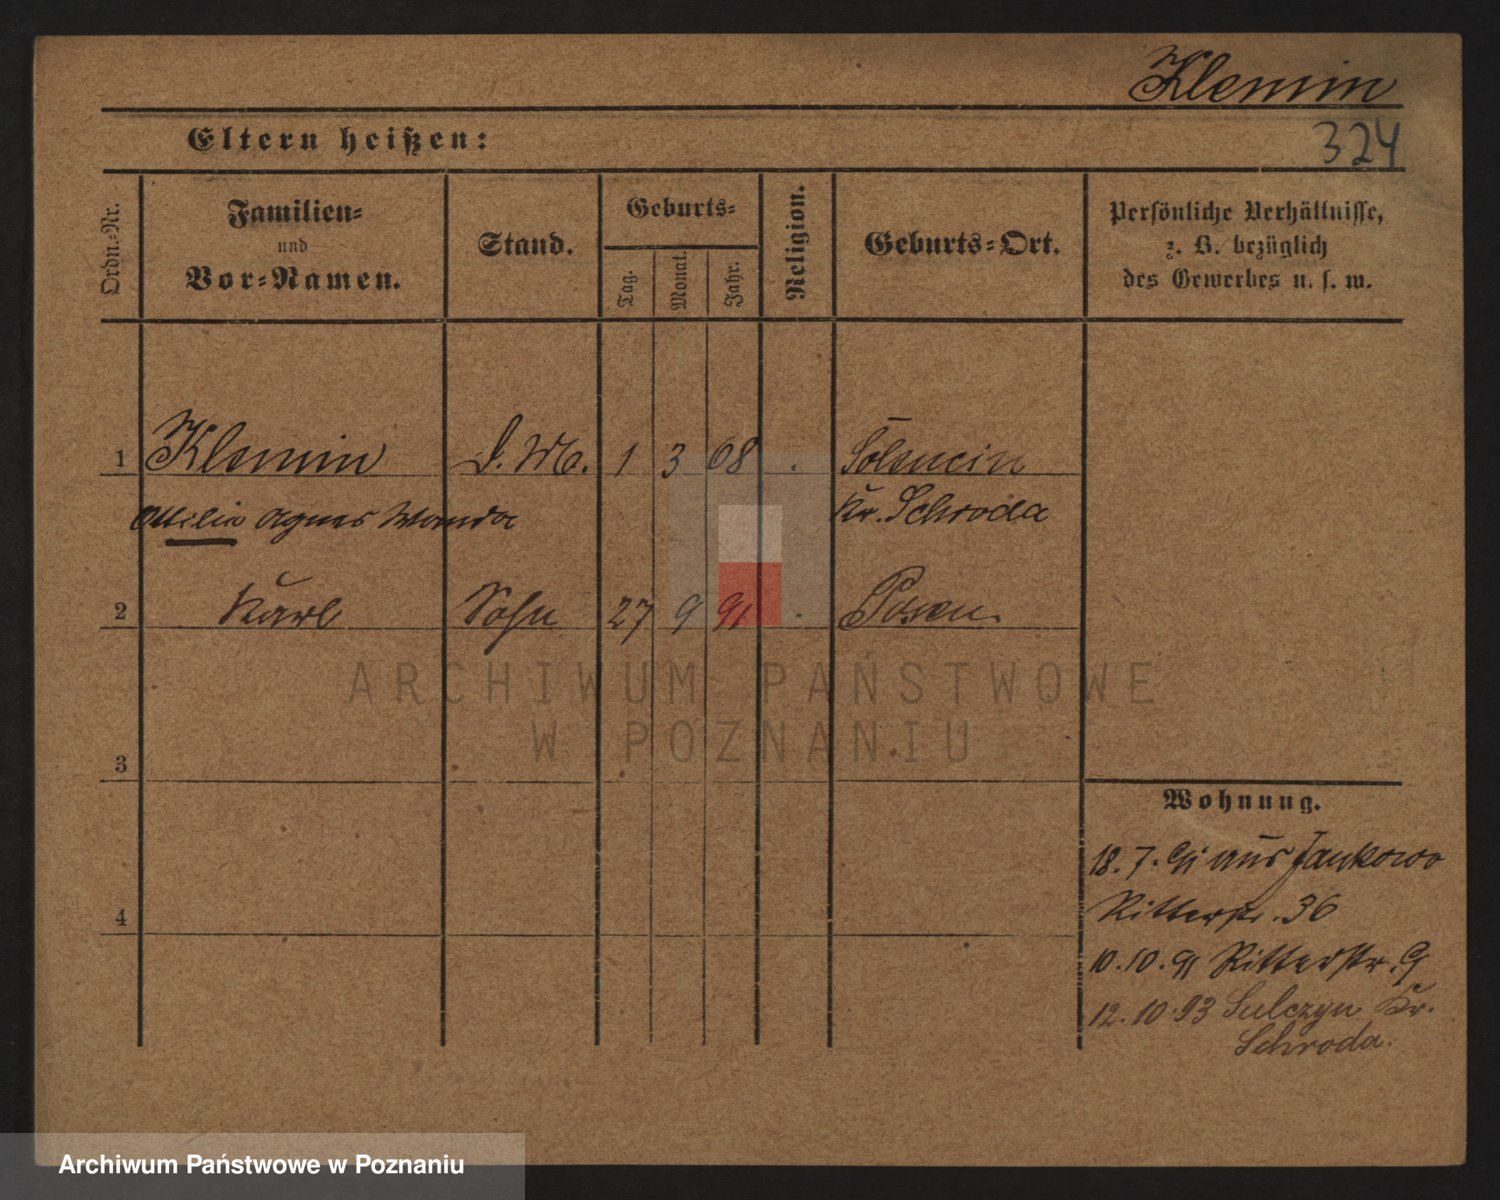 Klemin
324
Eltern heißen:
Ordn.-Nr.
Familien-
und
Vor-Namen.
Stand.
Geburts-
Tag.
Monat.
Jahr.
Religion.
Geburts-Ort.
Persönliche Verhältnisse,
z. B. bezüglich
des Gewerbes u. s. w.
1 Klemin D. M. 1 3 68 .
Ottilie Agnes Wanda Kr. Schroda
2 Karl Sohn 27 9 91 . Posen.
3
4
Wohnung.
18. 7. 91 aus Jankowo
Ritterstr. 36
10. 10. 91 Ritterstr. 9
12. 10. 93 Sulczyn Kr.
Schroda.
ARCHIWUM PAŃSTWOWE
W POZNANIU
Archiwum Państwowe w Poznaniu